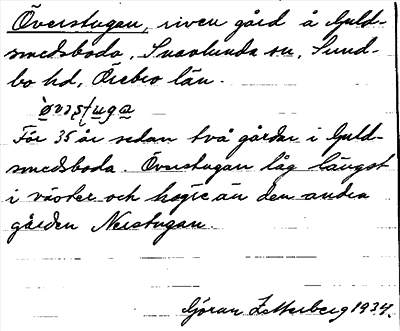 Överstugan, riven gård å Guld-
smedsboda, Snavlunda sn, Sund-
bo hd, Örebro län.
För 35 år sedan två gårdar i Guld-
smedsboda. Överstugan låg längst
i väster och högre än den andra
gården Nerstugan.
Göran Zetterberg 1934.